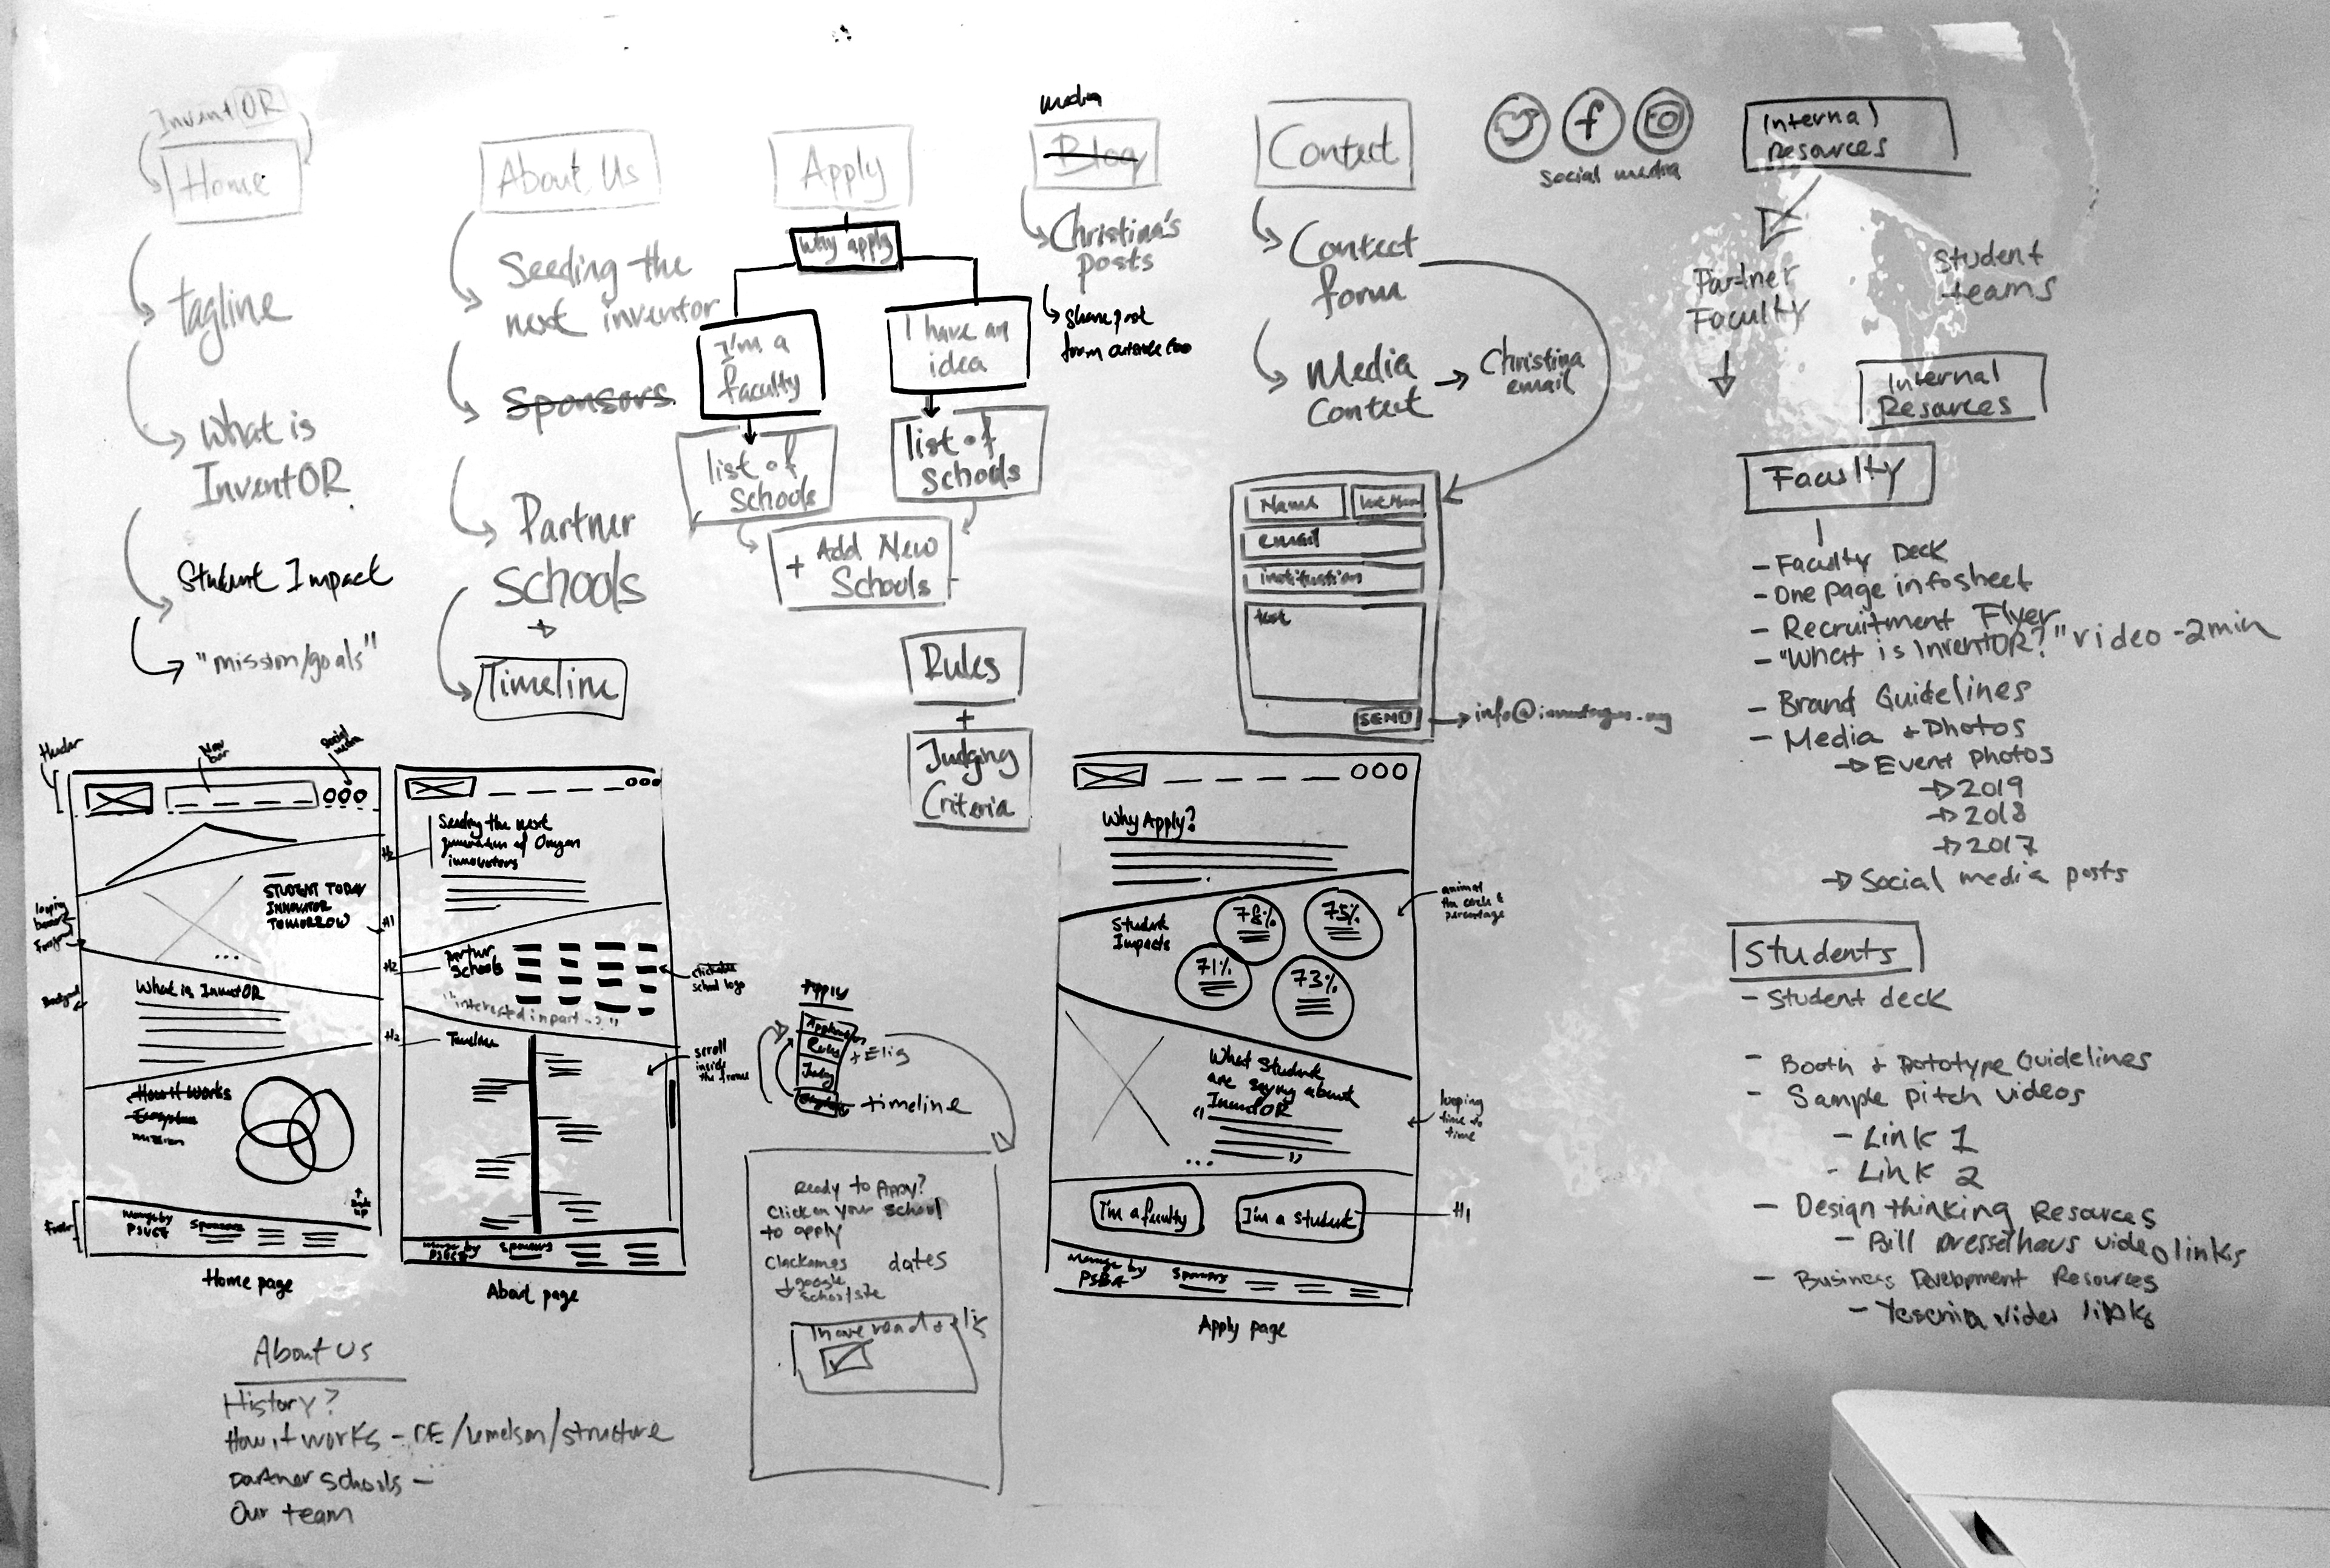 InventOR
Home
tagline
What is
InventOR
Student Impact
"mission/goals"
About Us
Seeding the
next inventor
Sponsors
Partner
Schools
+
Timeline
Apply
Why apply
I'm a
faculty
I have an
idea
list of
Schools
list of
Schools
+ Add New
Schools
Rules
+
Judging
Criteria
Media
Blog
Christina's
posts
share post
Contact
Contact
form
Media
Contact
Christina
email
Name
email
institution
text
SEND
social media
Internal
Resources
Partner
Faculty
Student
teams
Internal
Resources
Faculty
- Faculty Deck
- One page infosheet
- Recruitment Flyer
- "What is InventOR?" video - 2min
- Brand Guidelines
- Media + Photos
Event photos
2019
2018
2017
Social media posts
Students
- Student deck
- Booth + Prototype Guidelines
- Sample pitch videos
- Link 1
- Link 2
- Design thinking Resources
- Bill Dresselhaus video links
- Business Development Resources
- Yesenia video links
Header
Nav
bar
social
media
STUDENT TODAY
INNOVATOR
TOMORROW
H1
What is InventOR
How it works
Ecosystem
mission
Back
up
Footer
Manage by
Sponsors
Home page
Seeding the next
generation of Oregon
innovators
H2
Partner
Schools
H2
clickable
school logo
Timeline
H2
scroll
inside
the frame
Manage by
Sponsors
About page
Apply
Rules
+ Elig
timeline
Ready to Apply?
Click on your school
to apply
Clackamas
dates
google
school site
Why Apply?
Student
Impacts
78%
75%
71%
73%
What Student
are saying about
InventOR
"
"
looping
time to
time
I'm a faculty
I'm a student
H1
Manage by
Sponsors
Apply page
About Us
History?
How it works - CE/Lemelson/structure
Partner schools -
Our team